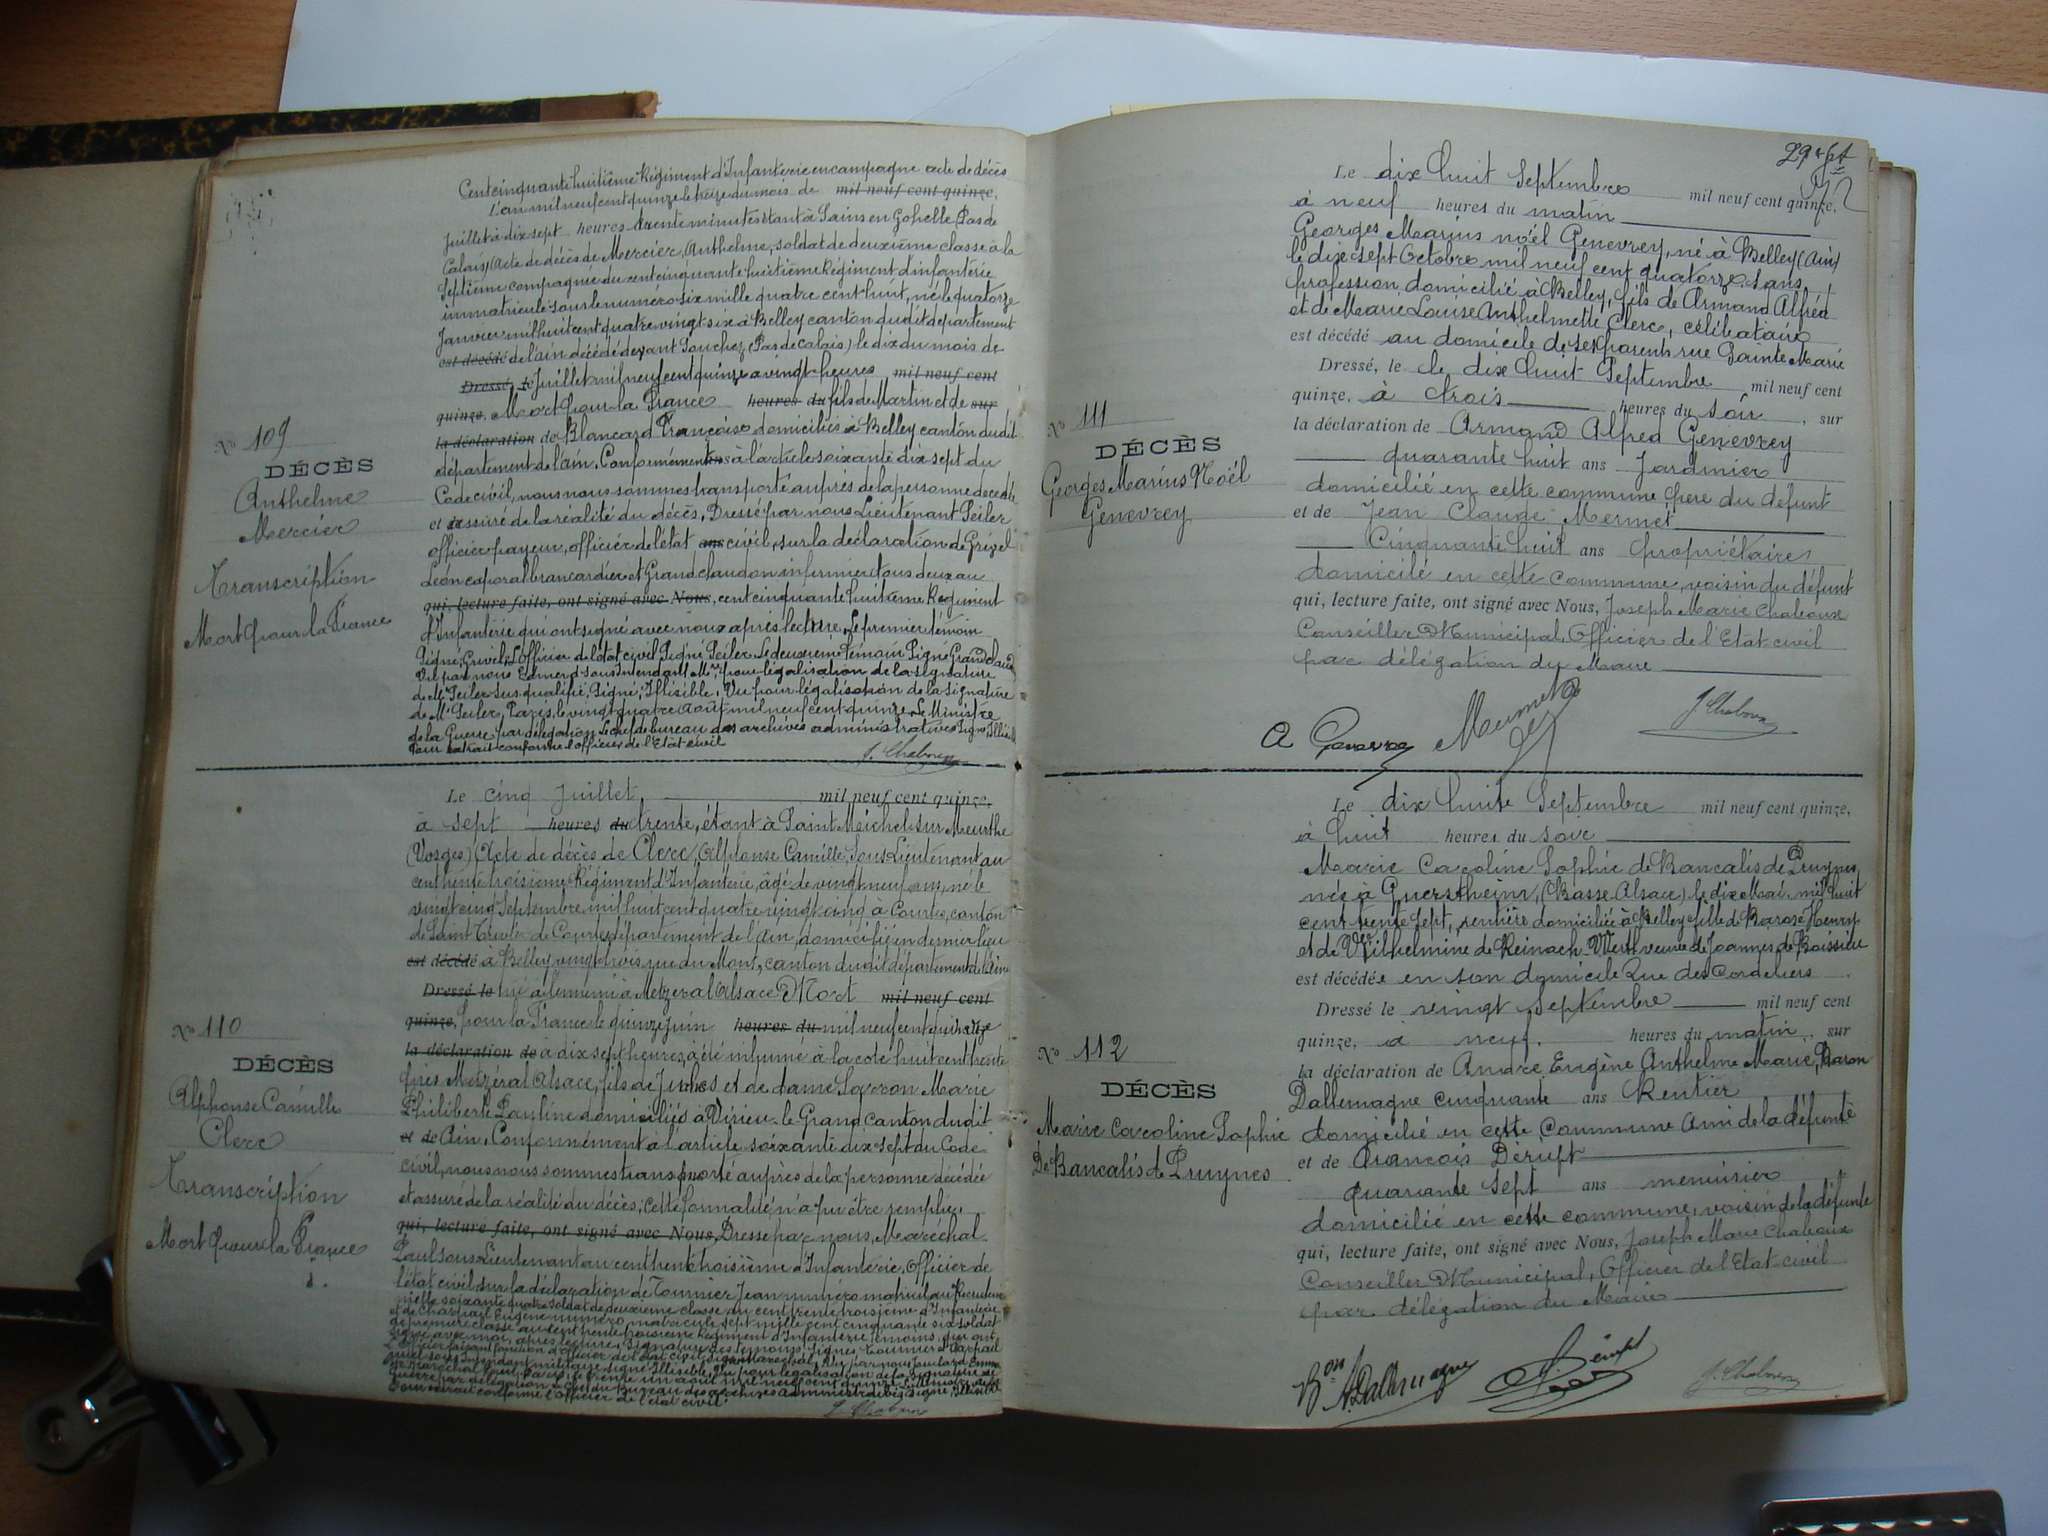 Cent cinquante huitième Régiment d'Infanterie en campagne acte de décès
L'an mil neuf cent quinze le treize du mois de mil neuf cent quinze.
Juillet à dix sept heures trente minutes étant à Sains en Gohelle Pas de
Calais) Acte de décès de Mercier, Anthelme, soldat de deuxième classe à la
Septième compagnie du cent cinquante huitième Régiment d'infanterie
immatriculé sous le numéro six mille quatre cent huit, né le quatorze
Janvier mil huit cent quatre vingt six à Belley canton dudit département
est décédé de l'ain décédé devant Souchez (Pas de Calais) le dix du mois de
Dressé, le Juillet mil neuf cent quinze a vingt heures mil neuf cent
quinze, Mort pour la France heures du fils de Martin et de sur
la déclaration de Blancard Françoise domiciliés à Belley canton dudit
département de l'ain. Conformément à l'article soixante dix sept du
Code civil, nous nous sommes transporté auprès de la personne décédée
et assuré de la réalité du décès, Dressé par nous Lieutenant Seiler
officier payeur, officier de l'état civil, sur la déclaration de Grivel
Léon caporal brancardier et Grandclaudon infirmier tous deux au
qui, lecture faite, ont signé avec Nous, cent cinquante huitième Régiment
d'Infanterie qui ont signé avec nous après lecture. Le premier témoin
Signé, Grivel, L'Officier de l'état civil Signé Seiler. Le deuxième témoin Signé Grandclaud
Vu par nous Edmond sous Intendant Mre pour légalisation de la signature
de Mr Seiler sus qualifié. Signé, Illisible, Vu pour légalisation de la signature
de Mr Seiler, Paris, le vingt quatre août mil neuf cent quinze. Le Ministre
de la Guerre par délégation Le chef de bureau des archives administratives Signé, Illisible
Pour extrait conforme l'officier de l'Etat civil
No 109
DÉCÈS
Anthelme
Mercier
Transcription
Mort pour la France
Le cinq Juillet, mil neuf cent quinze.
à sept heures du trente, étant à Saint Michel sur Meurthe
(Vosges) Acte de décès de Clerc, Alphonse Camille, Sous Lieutenant au
cent trente troisième Régiment d'Infanterie, âgé de vingt neuf ans, né le
vingt cinq Septembre mil huit cent quatre vingt cinq à Courtes, canton
de Saint Trivier de Courtes, département de l'ain, domicilié en dernier lieu
est décédé à Belley, vingt trois rue du Mont, canton dudit département de l'ain
Dressé le tué à l'ennemi à Metzeral Alsace Mort mil neuf cent
quinze, pour la France le quinze juin heures du mil neuf cent quinze
la déclaration de à dix sept heures, a été inhumé à la cote huit cent trente
près Metzéral Alsace, fils de Jules et de dame Marie
Philiberte Pauline domiciliés à Virieu le Grand canton dudit
et de Ain. Conformément à l'article soixante dix sept du Code
civil, nous nous sommes transporté auprès de la personne décédée
et assuré de la réalité du décès; cette formalité n'a pu être remplie.
qui, lecture faite, ont signé avec Nous, Dressé par nous, Maréchal
Paul sous Lieutenant au cent trente troisième d'Infanterie, Officier de
l'état civil sur la déclaration de Tournier Jean numéro matricule
mille soixante quatre soldat de deuxième classe au cent trente troisième d'Infanterie
et de Eugène numéro matricule sept mille cent cinquante six soldat
de première classe au cent trente troisième Régiment d'Infanterie témoins qui ont
signé avec moi, après lecture. Signature des témoins Signés Tournier
L'Officier faisant fonction d'officier de l'état civil Signé Maréchal, Vu par nous
sous Intendant militaire signé Illisible, Vu pour légalisation de la signature de
Mr Maréchal Paul, Paris, le trente un août mil neuf cent quinze Le Ministre de la
Guerre par délégation le chef du Bureau des archives administratives Signé Illisible
Pour extrait conforme l'Officier de l'état civil
No 110
DÉCÈS
Alphonse Camille
Clerc
Transcription
Mort pour la France
Le dix huit Septembre mil neuf cent quinze,
à neuf heures du matin
Georges Marius noël Genevrey, né à Belley (Ain)
le dix sept Octobre mil neuf cent quatorze, sans
profession domicilié à Belley, fils de Armand Alfred
et de Marie Louise Anthelmette Clerc, célibataire
est décédé au domicile de ses parents rue Sainte Marie
Dressé, le le dix huit Septembre mil neuf cent
quinze, à trois heures du soir, sur
la déclaration de Armand Alfred Genevrey
quarante huit ans Jardinier
domicilié en cette commune père du défunt
et de Jean Claude Mermet
Cinquante huit ans propriétaire
domicilié en cette commune, voisin du défunt
qui, lecture faite, ont signé avec Nous, Joseph Marie Chaboux
Conseiller Municipal, Officier de l'Etat civil
par délégation du Maire
A Genevrey Mermet J. Chaboux
No 111
DÉCÈS
Georges Marius Noël
Genevrey
Le dix huit Septembre mil neuf cent quinze,
à huit heures du soir
Marie Caroline Sophie de Bancalis de Pruynes
née à (Basse Alsace) le dix Mai mil huit
cent trente sept, rentière domiciliée à Belley fille de Henry
et de Wilhelmine de Reinach Werth veuve de Joannes de Boissieu
est décédée en son domicile Rue des Cordeliers
Dressé le vingt Septembre mil neuf cent
quinze, à neuf heures du matin, sur
la déclaration de André Eugène Anthelme Marie, Baron
Dallemagne cinquante ans Rentier
domicilié en cette Commune Ami de la défunte
et de François Dérupt
quarante sept ans menuisier
domicilié en cette commune, voisin de la défunte
qui, lecture faite, ont signé avec Nous, Joseph Marie Chaboux
Conseiller Municipal, Officier de l'Etat civil
par délégation du Maire
Bon A. Dallemagne Dérupt J. Chaboux
No 112
DÉCÈS
Marie Caroline Sophie
De Bancalis de Pruynes